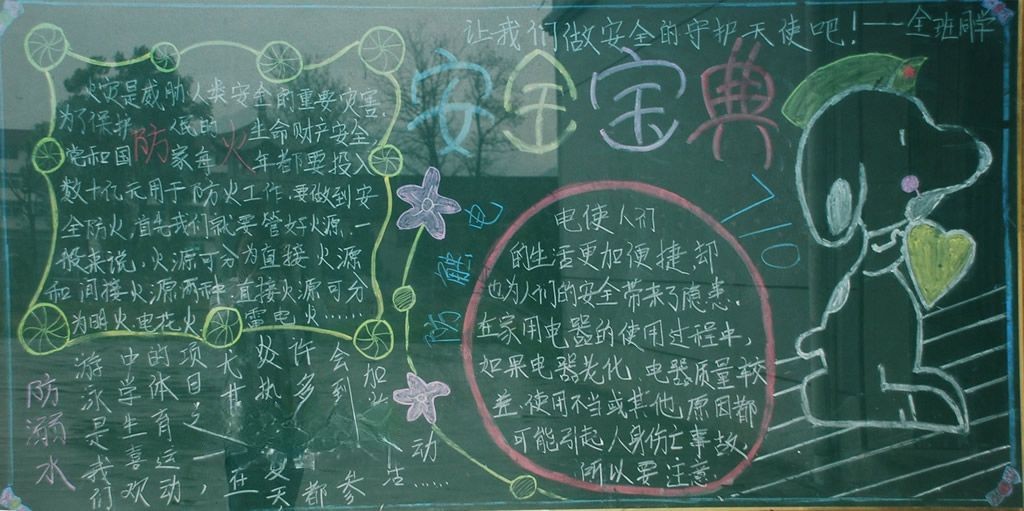 让我们做安全的守护天使吧!——全班同学
安全宝典
火灾是威胁人类安全的重要灾害.
为了保护 低的 生命财产安全
党和国 家每 年都要投入
防火
数十亿元用于防火工作.要做到安
全防火,首先我们就要管好火源.一
般来说,火源可分为直接火源
和间接火源两种.直接火源可分
为明火电花火 雷电火......
防触电
电使人们
的生活更加便捷,却
也为人们的安全带来了隐患.
在家用电器的使用过程中,
如果电器老化.电器质量较
差.使用不当或其他原因都
可能引起人身伤亡事故,
所以要注意
110
防溺水
游泳是我们
中学生喜欢
的体育运动
项目之一,
炎热
夏天
许多
都会
参加
到
活动......